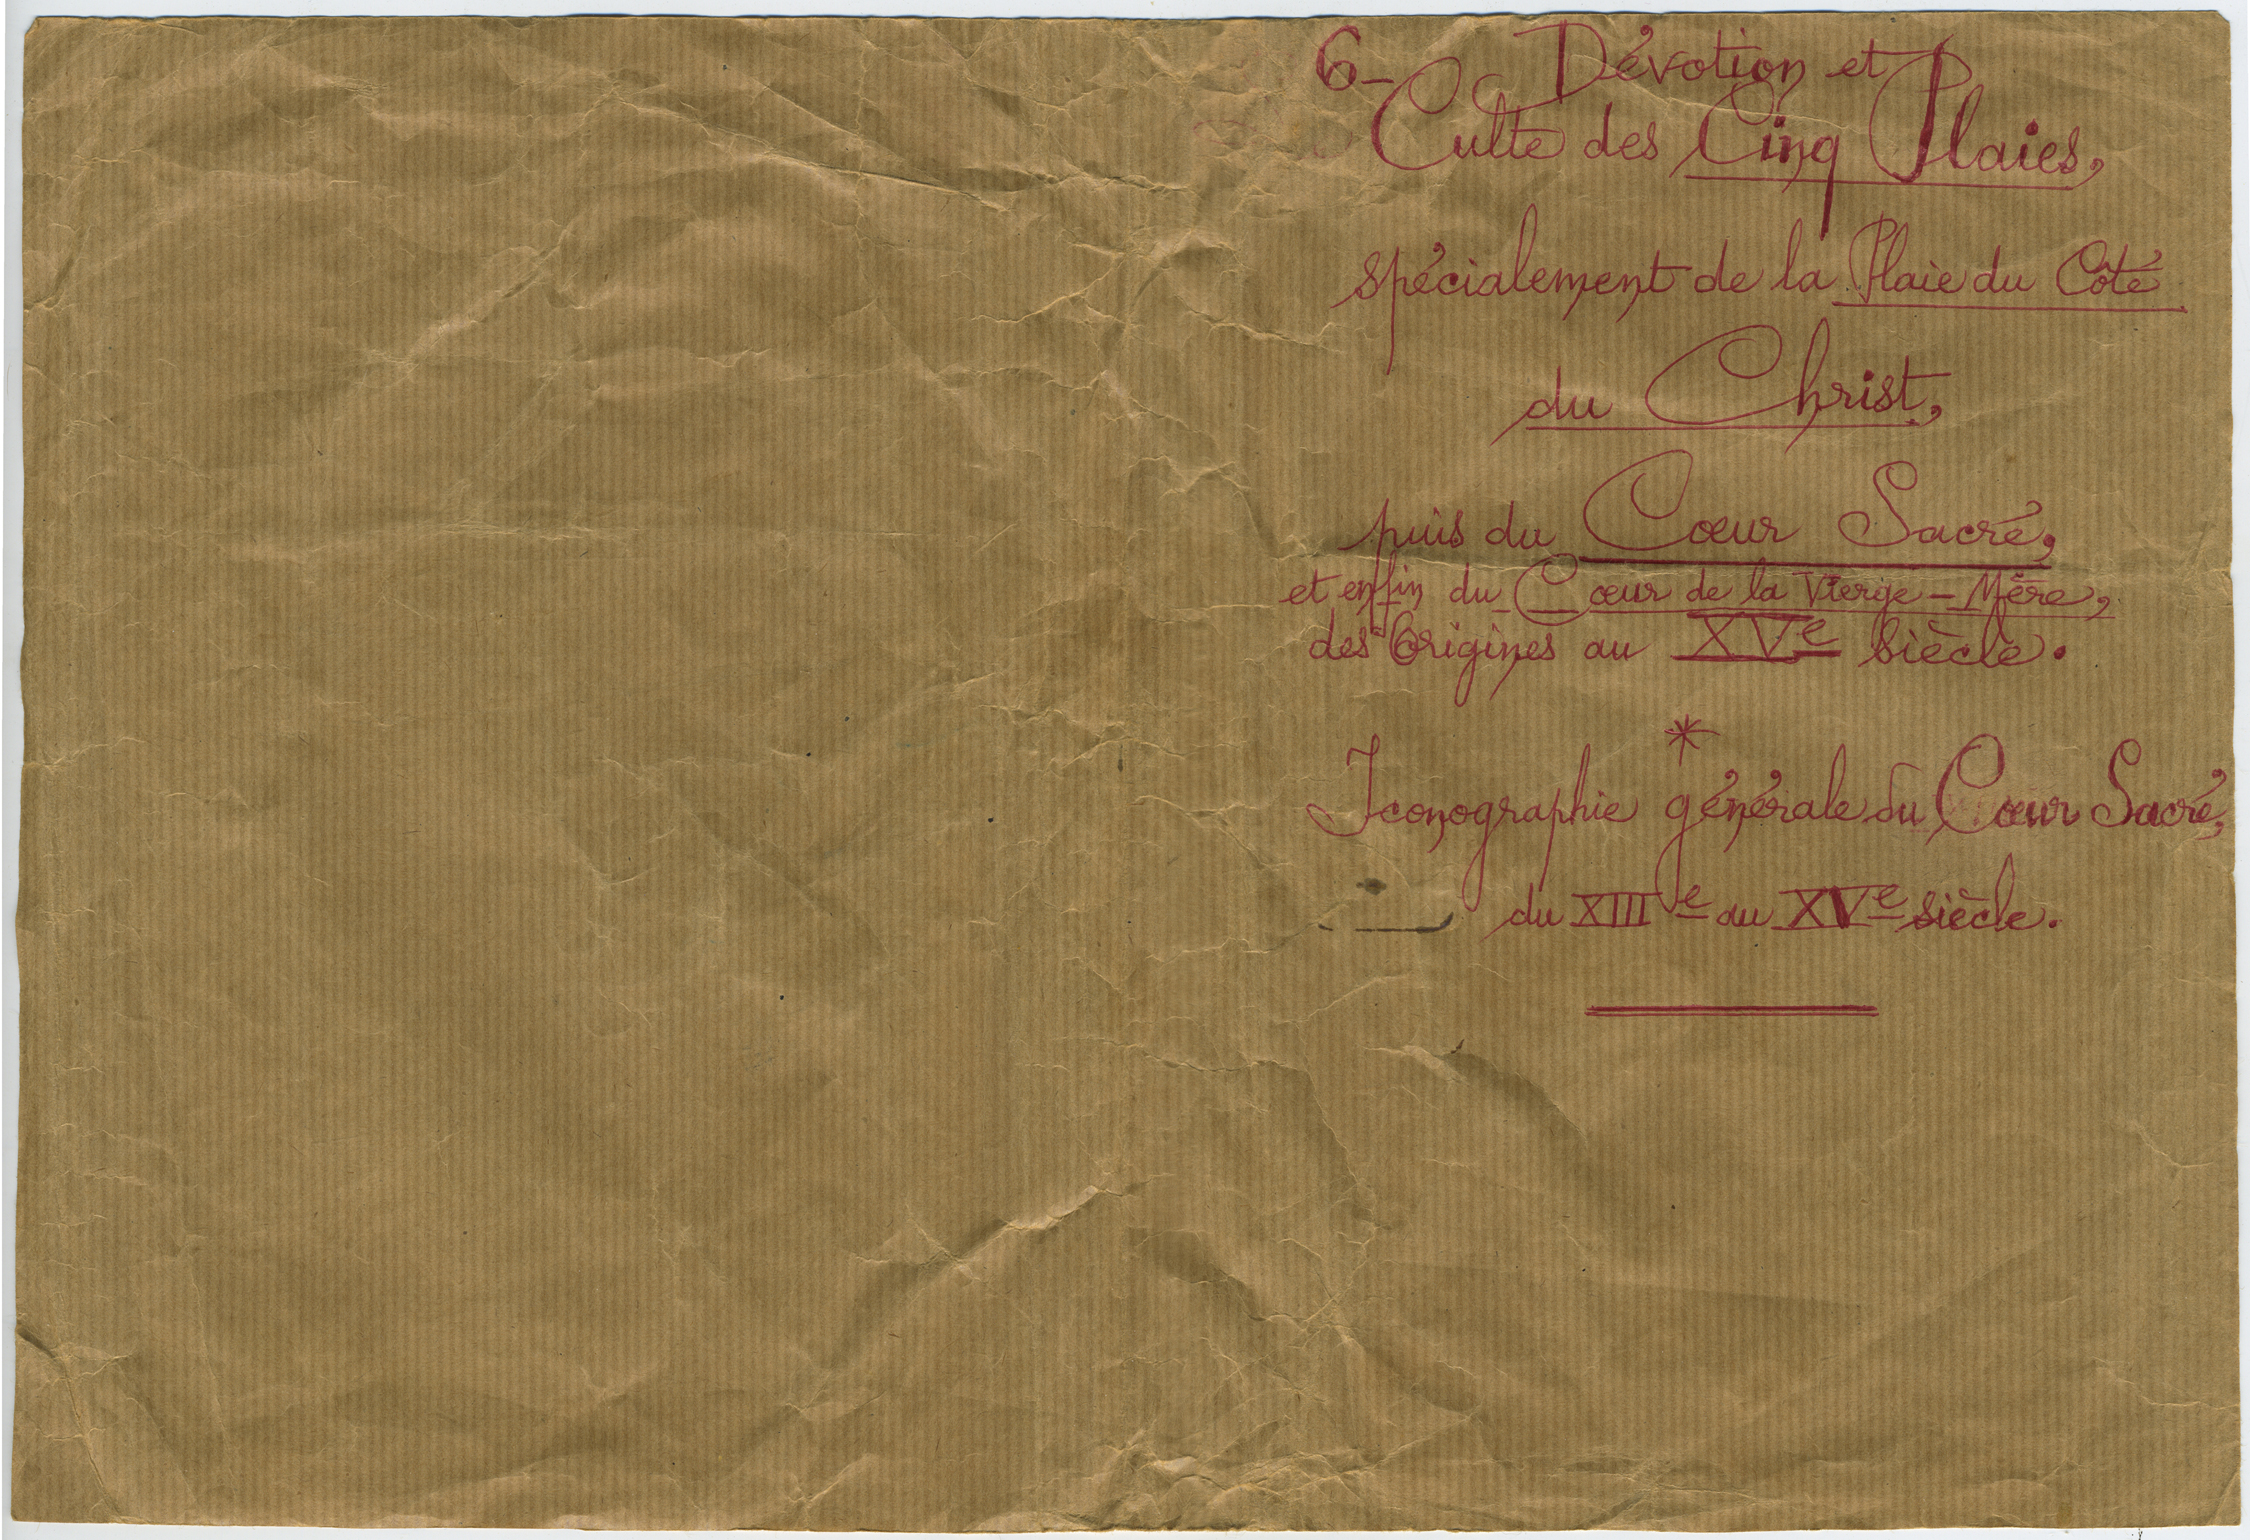 6- Dévotion et
Culte des Cinq Plaies,
spécialement de la Plaie du Côté
du Christ,
puis du Cœur Sacré,
et enfin du Cœur de la Vierge-Mère,
des Origines au XVe siècle.
*
Iconographie générale du Cœur Sacré,
du XIIIe au XVe siècle.